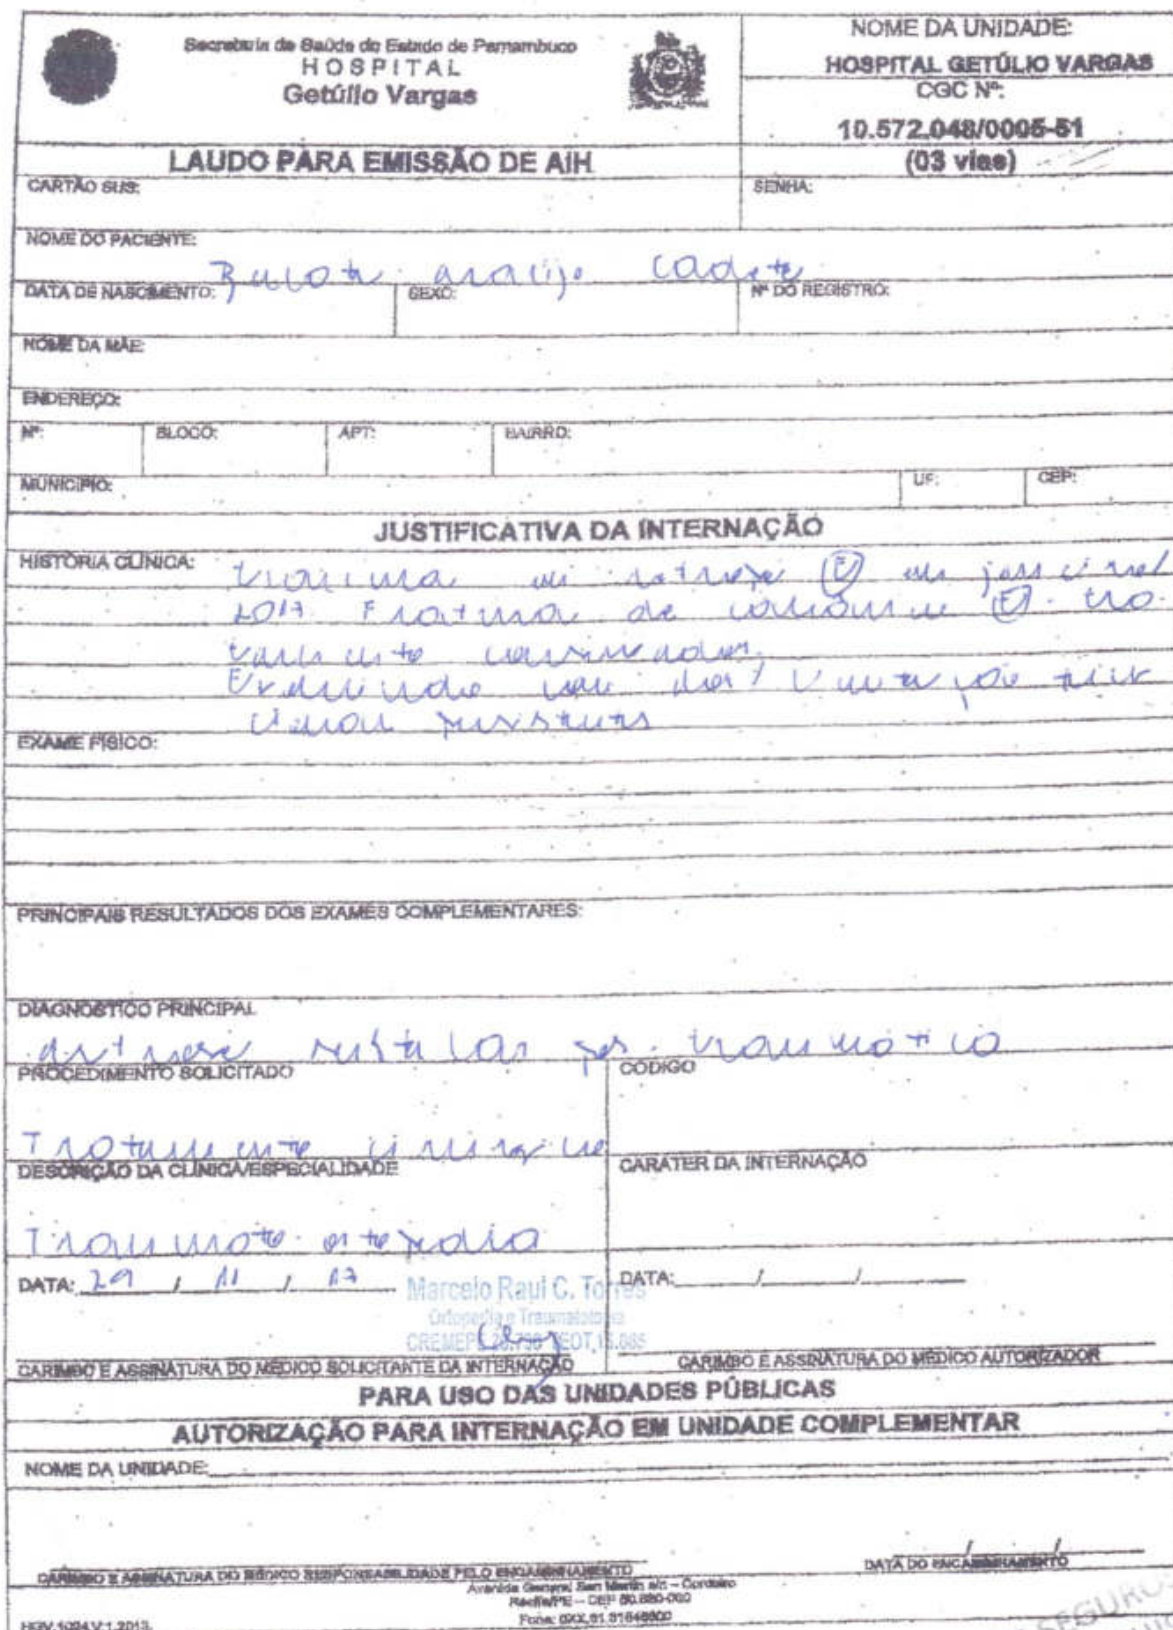 Secretaria de Saúde do Estado de Pernambuco
HOSPITAL
Getúlio Vargas
NOME DA UNIDADE:
HOSPITAL GETÚLIO VARGAS
CGC Nº:
10.572.048/0005-51
(03 vias)
LAUDO PARA EMISSÃO DE AIH
CARTÃO SUS:
SENHA:
NOME DO PACIENTE:
araújo Cadete
DATA DE NASCIMENTO:
SEXO:
Nº DO REGISTRO:
NOME DA MÃE:
ENDEREÇO:
Nº:
BLOCO:
APT:
BAIRRO:
MUNICIPIO:
UF:
CEP:
JUSTIFICATIVA DA INTERNAÇÃO
HISTÓRIA CLÍNICA:
trauma em
2017 Fratura de calcâneo E tra
tamento conservador
Evoluindo com dor
persistente
EXAME FÍSICO:
PRINCIPAIS RESULTADOS DOS EXAMES COMPLEMENTARES:
DIAGNÓSTICO PRINCIPAL
artrose subtalar pos traumatica
PROCEDIMENTO SOLICITADO
CÓDIGO
Tratamento cirurgico
DESCRIÇÃO DA CLÍNICA/ESPECIALIDADE
CARÁTER DA INTERNAÇÃO
Traumato-ortopedia
DATA: 29 / 11 / 17
DATA: / /
Marcelo Raul C. Torres
Ortopedia e Traumatologia
CARIMBO E ASSINATURA DO MÉDICO SOLICITANTE DA INTERNAÇÃO
CARIMBO E ASSINATURA DO MÉDICO AUTORIZADOR
PARA USO DAS UNIDADES PÚBLICAS
AUTORIZAÇÃO PARA INTERNAÇÃO EM UNIDADE COMPLEMENTAR
NOME DA UNIDADE:
CARIMBO E ASSINATURA DO MÉDICO RESPONSABILIDADE PELO ENCAMINHAMENTO
DATA DO ENCAMINHAMENTO
Avenida General San Martin s/n – Cordeiro
Recife/PE – CEP 50.680-000
Fone: 0XX.81.31846600
HGV.1094.V.1.2013.
SEGUROS